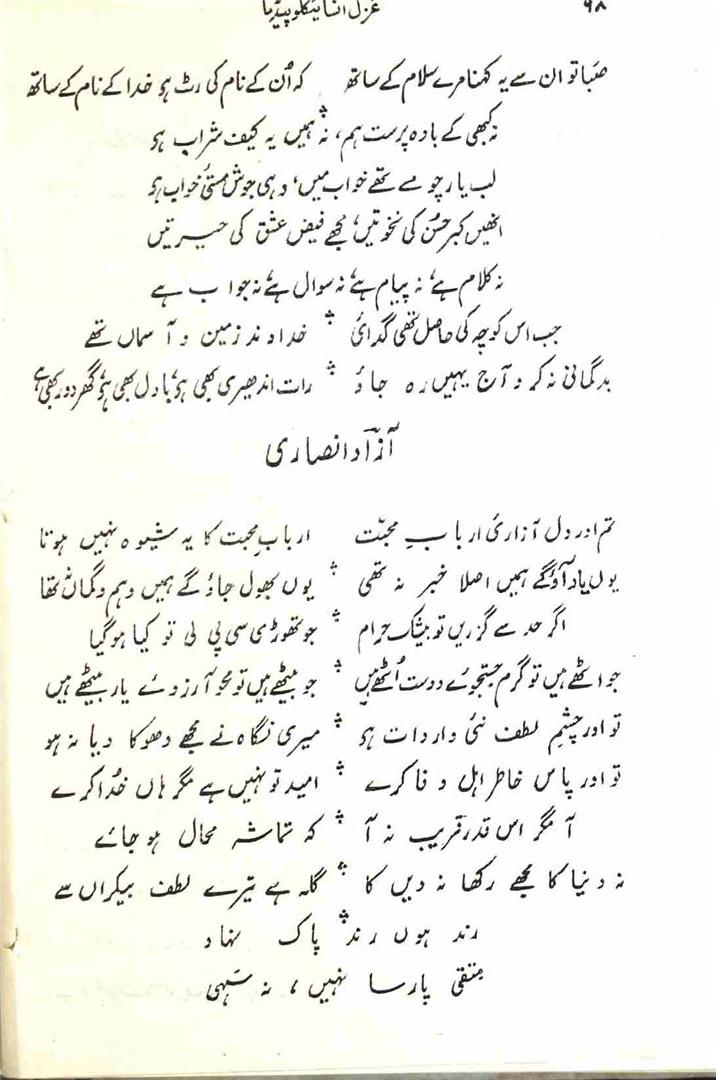 ۹۸ غزل انسائیکلوپیڈیا
صبا تو ان سے یہ کہنا مرے سلام کے ساتھ کہ اُن کے نام کی رٹ ہو خدا کے نام کے ساتھ
نہ کبھی کے بادہ پرست ہم، نہ ہمیں یہ کیف شراب ہو
لب یار چومے تھے خواب میں، وہی جوش مستیٔ خواب ہو
انھیں کبر حسن کی نخوتیں، مجھے فیض عشق کی حیرتیں
نہ کلام ہے، نہ پیام ہے، نہ سوال ہے، نہ جواب ہے
جب اس کوچہ کی حاصل تھی گدائی خداوند زمین و آسماں تھے
بدگمانی نہ کرو آج یہیں رہ جاؤ رات اندھیری بھی ہے، بادل بھی ہے، گھر دور بھی ہے
آزاد انصاری
تم اور دل آزاریٔ اربابِ محبّت اربابِ محبت کا یہ شیوہ نہیں ہوتا
یوں یاد آؤ گے ہمیں اصلا خبر نہ تھی یوں بھول جاؤ گے ہمیں وہم و گماں نہ تھا
اگر حد سے گزریں تو بیشک حرام جو تھوڑی سی پی لی تو کیا ہو گیا
جو اٹھے ہیں تو گرم جستجوئے دوست اُٹھے ہیں جو بیٹھے ہیں تو محو آرزوئے یار بیٹھے ہیں
تو اور چشمِ لطف نئی واردات ہو میری نگاہ نے مجھے دھوکا دیا نہ ہو
تو اور پاس خاطر اہل وفا کرے امید تو نہیں ہے مگر ہاں خُدا کرے
آ مگر اس قدر قریب نہ آ کہ تماشہ محال ہو جائے
نہ دنیا کا مجھے رکھا نہ دیں کا گلہ ہے تیرے لطف بیکراں سے
رند ہوں رند پاک نہاد
متقی پارسا نہیں، نہ سہی